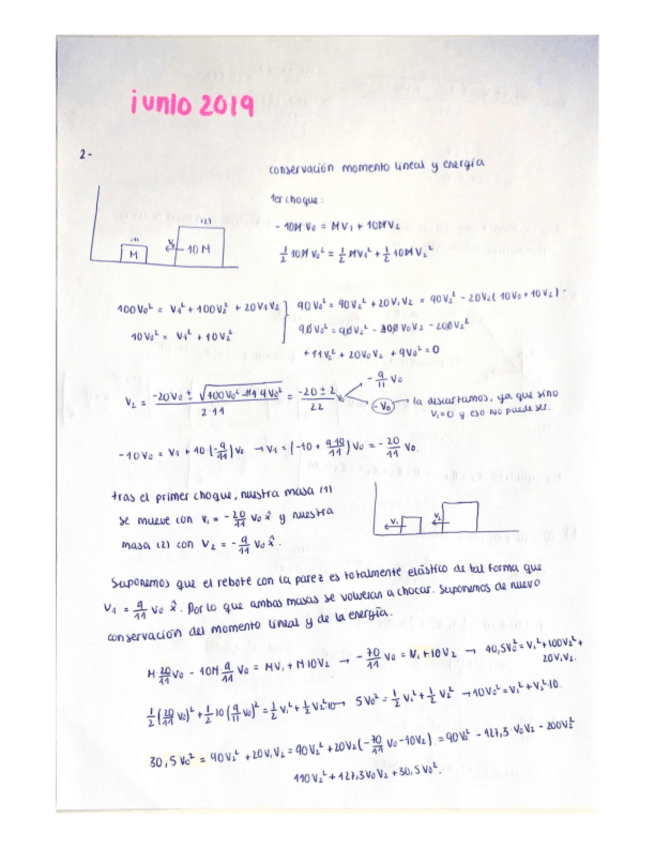 junio 2019
2-
conservación momento lineal y energía
1er choque:
- 10M V₀ = MV₁ + 10MV₂
½ 10M V₀² = ½ MV₁² + ½ 10M V₂²
(1)
M
(2)
10 M
100V₀² = V₁² + 100V₂² + 20V₁V₂ } 90V₀² = 90V₂² + 20V₁V₂ = 90V₂² - 20V₂(10V₀ + 10V₂).
10V₀² = V₁² + 10V₂²
+ 11V₂² + 20V₀V₂ + 9V₀² = 0
- 9/11 V₀
-V₀ → la descartamos, ya que sino
V₁=0 y eso no puede ser.
-10V₀ = V₁ + 10(-9/11)V₀ → V₁ = (-10 + 9·10/11)V₀ = -20/11 V₀.
tras el primer choque, nuestra masa (1)
se mueve con V₁ = -20/11 V₀ x̂ y nuestra
masa (2) con V₂ = -9/11 V₀ x̂.
V₁
V₂
Suponemos que el rebote con la parez es totalmente elástico de tal forma que
V₁ = 9/11 V₀ x̂. Por lo que ambas masas se volverán a chocar. Suponemos de nuevo
conservación del momento lineal y de la energía.
M 20/11 V₀ - 10M 9/11 V₀ = MV₁ + M10V₂ → -70/11 V₀ = V₁ + 10V₂ → 40,5V₀² = V₁² + 100V₂² +
20V₁V₂.
½(20/11 V₀)² + ½ 10(9/11 V₀)² = ½ V₁² + ½ V₂² 10 → 5V₀² = ½ V₁² + ½ V₂² → 10V₀² = V₁² + V₂²·10.
110V₂² + 127,3V₀V₂ + 30,5V₀².